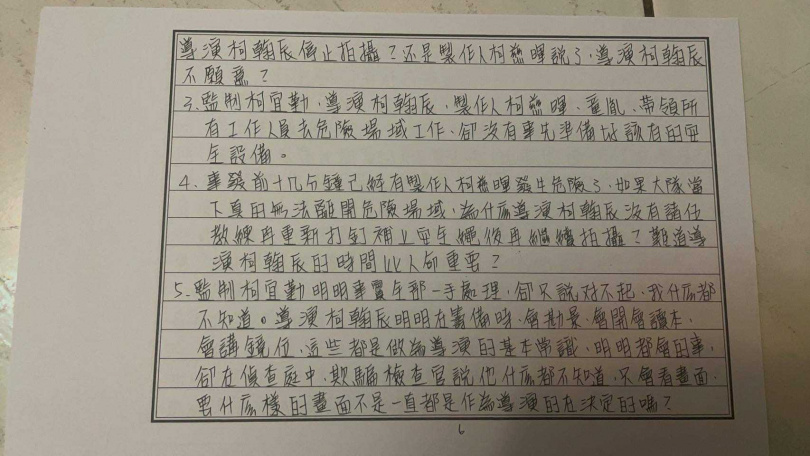 導演柯翰辰停止拍攝？還是製作人柯慈暉說了，導演柯翰辰
不願意？
3.監制柯宜勤，導演柯翰辰，製作人柯慈暉、童胤、帶領所
有工作人員去危險場域工作、卻沒有事先準備好該有的安
全設備。
4、事發前十几分鐘已經有製作人柯慈暉發生危險了，如果大隊當
下真的無法離開危險場域，為什麽導演柯翰辰沒有請伍
教練再重新打釘補上安全繩後再繼續拍攝？難道導
演柯翰辰的時間比人命重要？
5、監制柯宜勤明明事實全部一手處理，卻只說对不起，我什麽都
不知道。導演柯翰辰明明在籌備時，會勘景，會開會讀本，
會講鏡位，這些都是做為導演的基本常識，明明都會的事，
卻在偵查庭中，欺騙檢查官說他什麽都不知道，只會看畫面，
要什麽樣的畫面不是一直都是作為導演的在決定的嗎？
6